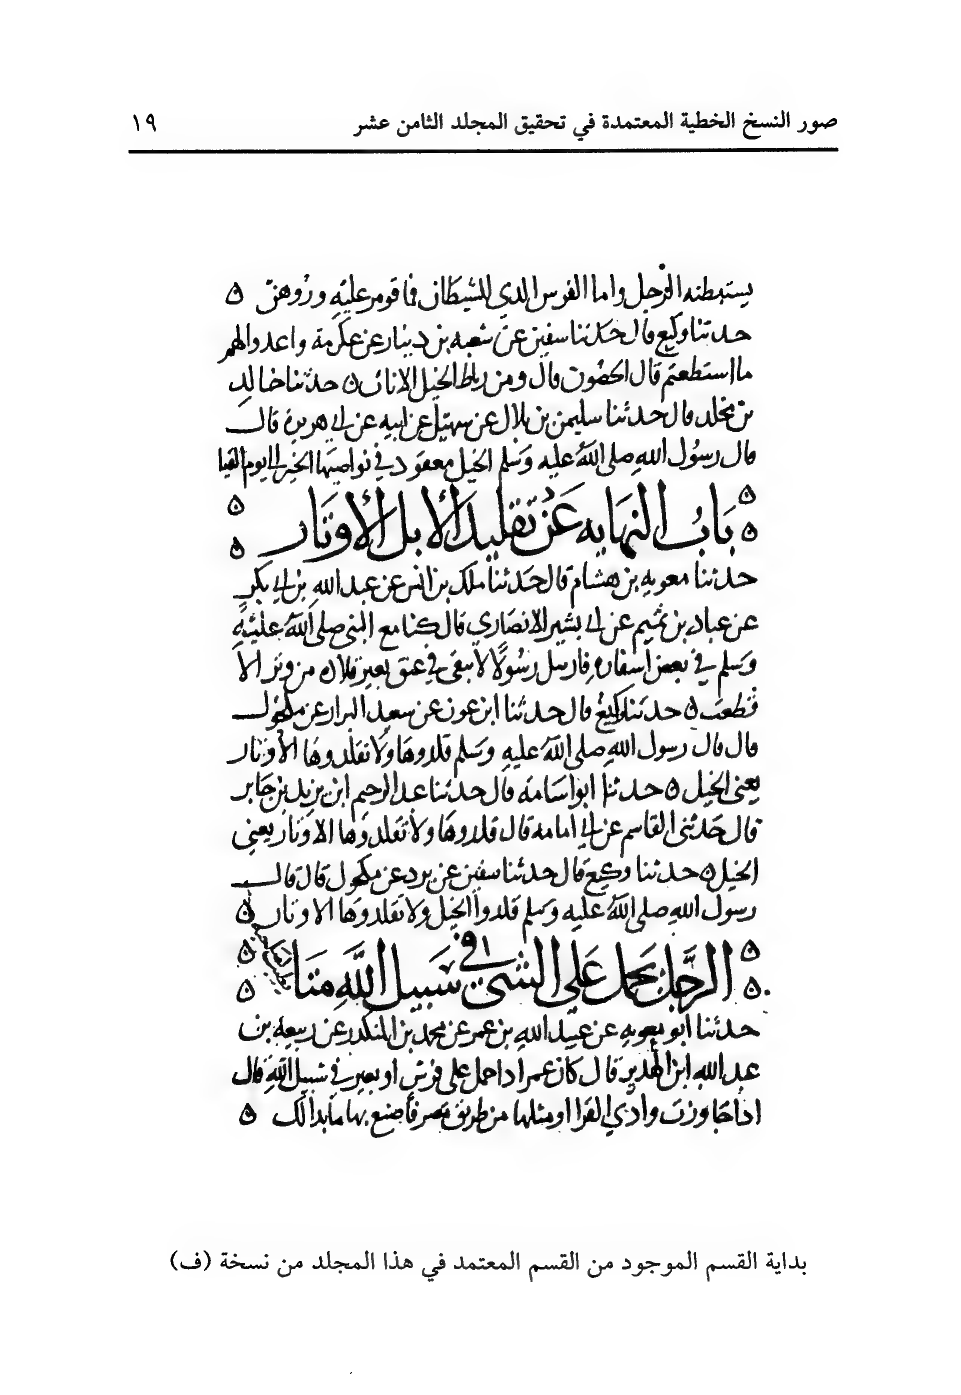 صور النسخ الخطية المعتمدة في تحقيق المجلد الثامن عشر ١٩
يستبطنه الرجل واما الفرس الذي للشيطان فما قومر عليه وروهن ه
حدثنا وكيع قال حدثنا سفين عن شعبه بن دينار عن عكرمة واعدوا لهم
ما استطعتم قال الحصون قال ومن رباط الخيل الاناث ه حدثنا خالد
بن مخلد قال حدثنا سليمن بن بلال عن سهيل عن ابيه عن ابي هريرة قال
قال رسول الله صلى الله عليه وسلم الخيل معقود في نواصيها الخير الى يوم القيا
باب النهايه عن تقليد الابل الاوتار
حدثنا معويه بن هشام قال حدثنا ملك بن انس عن عبد الله بن ابي بكر
عن عباد بن تميم عن ابي بشير الانصاري قال كنا مع النبي صلى الله عليه
وسلم في بعض اسفاره فارسل رسولا لا يبقى في عنق بعير قلاده من وتر الا
قطعت ه حدثنا وكيع قال حدثنا ابن عون عن سعيد البزار عن مكحول
قال قال رسول الله صلى الله عليه وسلم قلدوها ولا تقلدوها الاوتار
يعنى الخيل ه حدثنا ابو اسامة قال حدثنا عبد الرحيم ابن يزيد بن جابر
قال حدثني القاسم عن ابي امامه قال قلدوها ولا تقلدوها الاوتار يعني
الخيل ه حدثنا وكيع قال حدثنا سفين عن برد عن مكحول قال قال
رسول الله صلى الله عليه وسلم قلدوا الخيل ولا تقلدوها الاوتار ه
الرجل يحمل على الشي في سبيل الله متا
حدثنا ابو معويه عن عبيد الله بن عمر عن محمد بن المنكدر عن ربيعه بن
عبد الله ابن الهدير قال كان عمر اذا حمل على فرس او بعير في سبيل الله قال
اذا جاوزت وادي القرا او مثلها من طريق مصر فاصنع بها ما بدا لك ه
بداية القسم الموجود من القسم المعتمد في هذا المجلد من نسخة (ف)